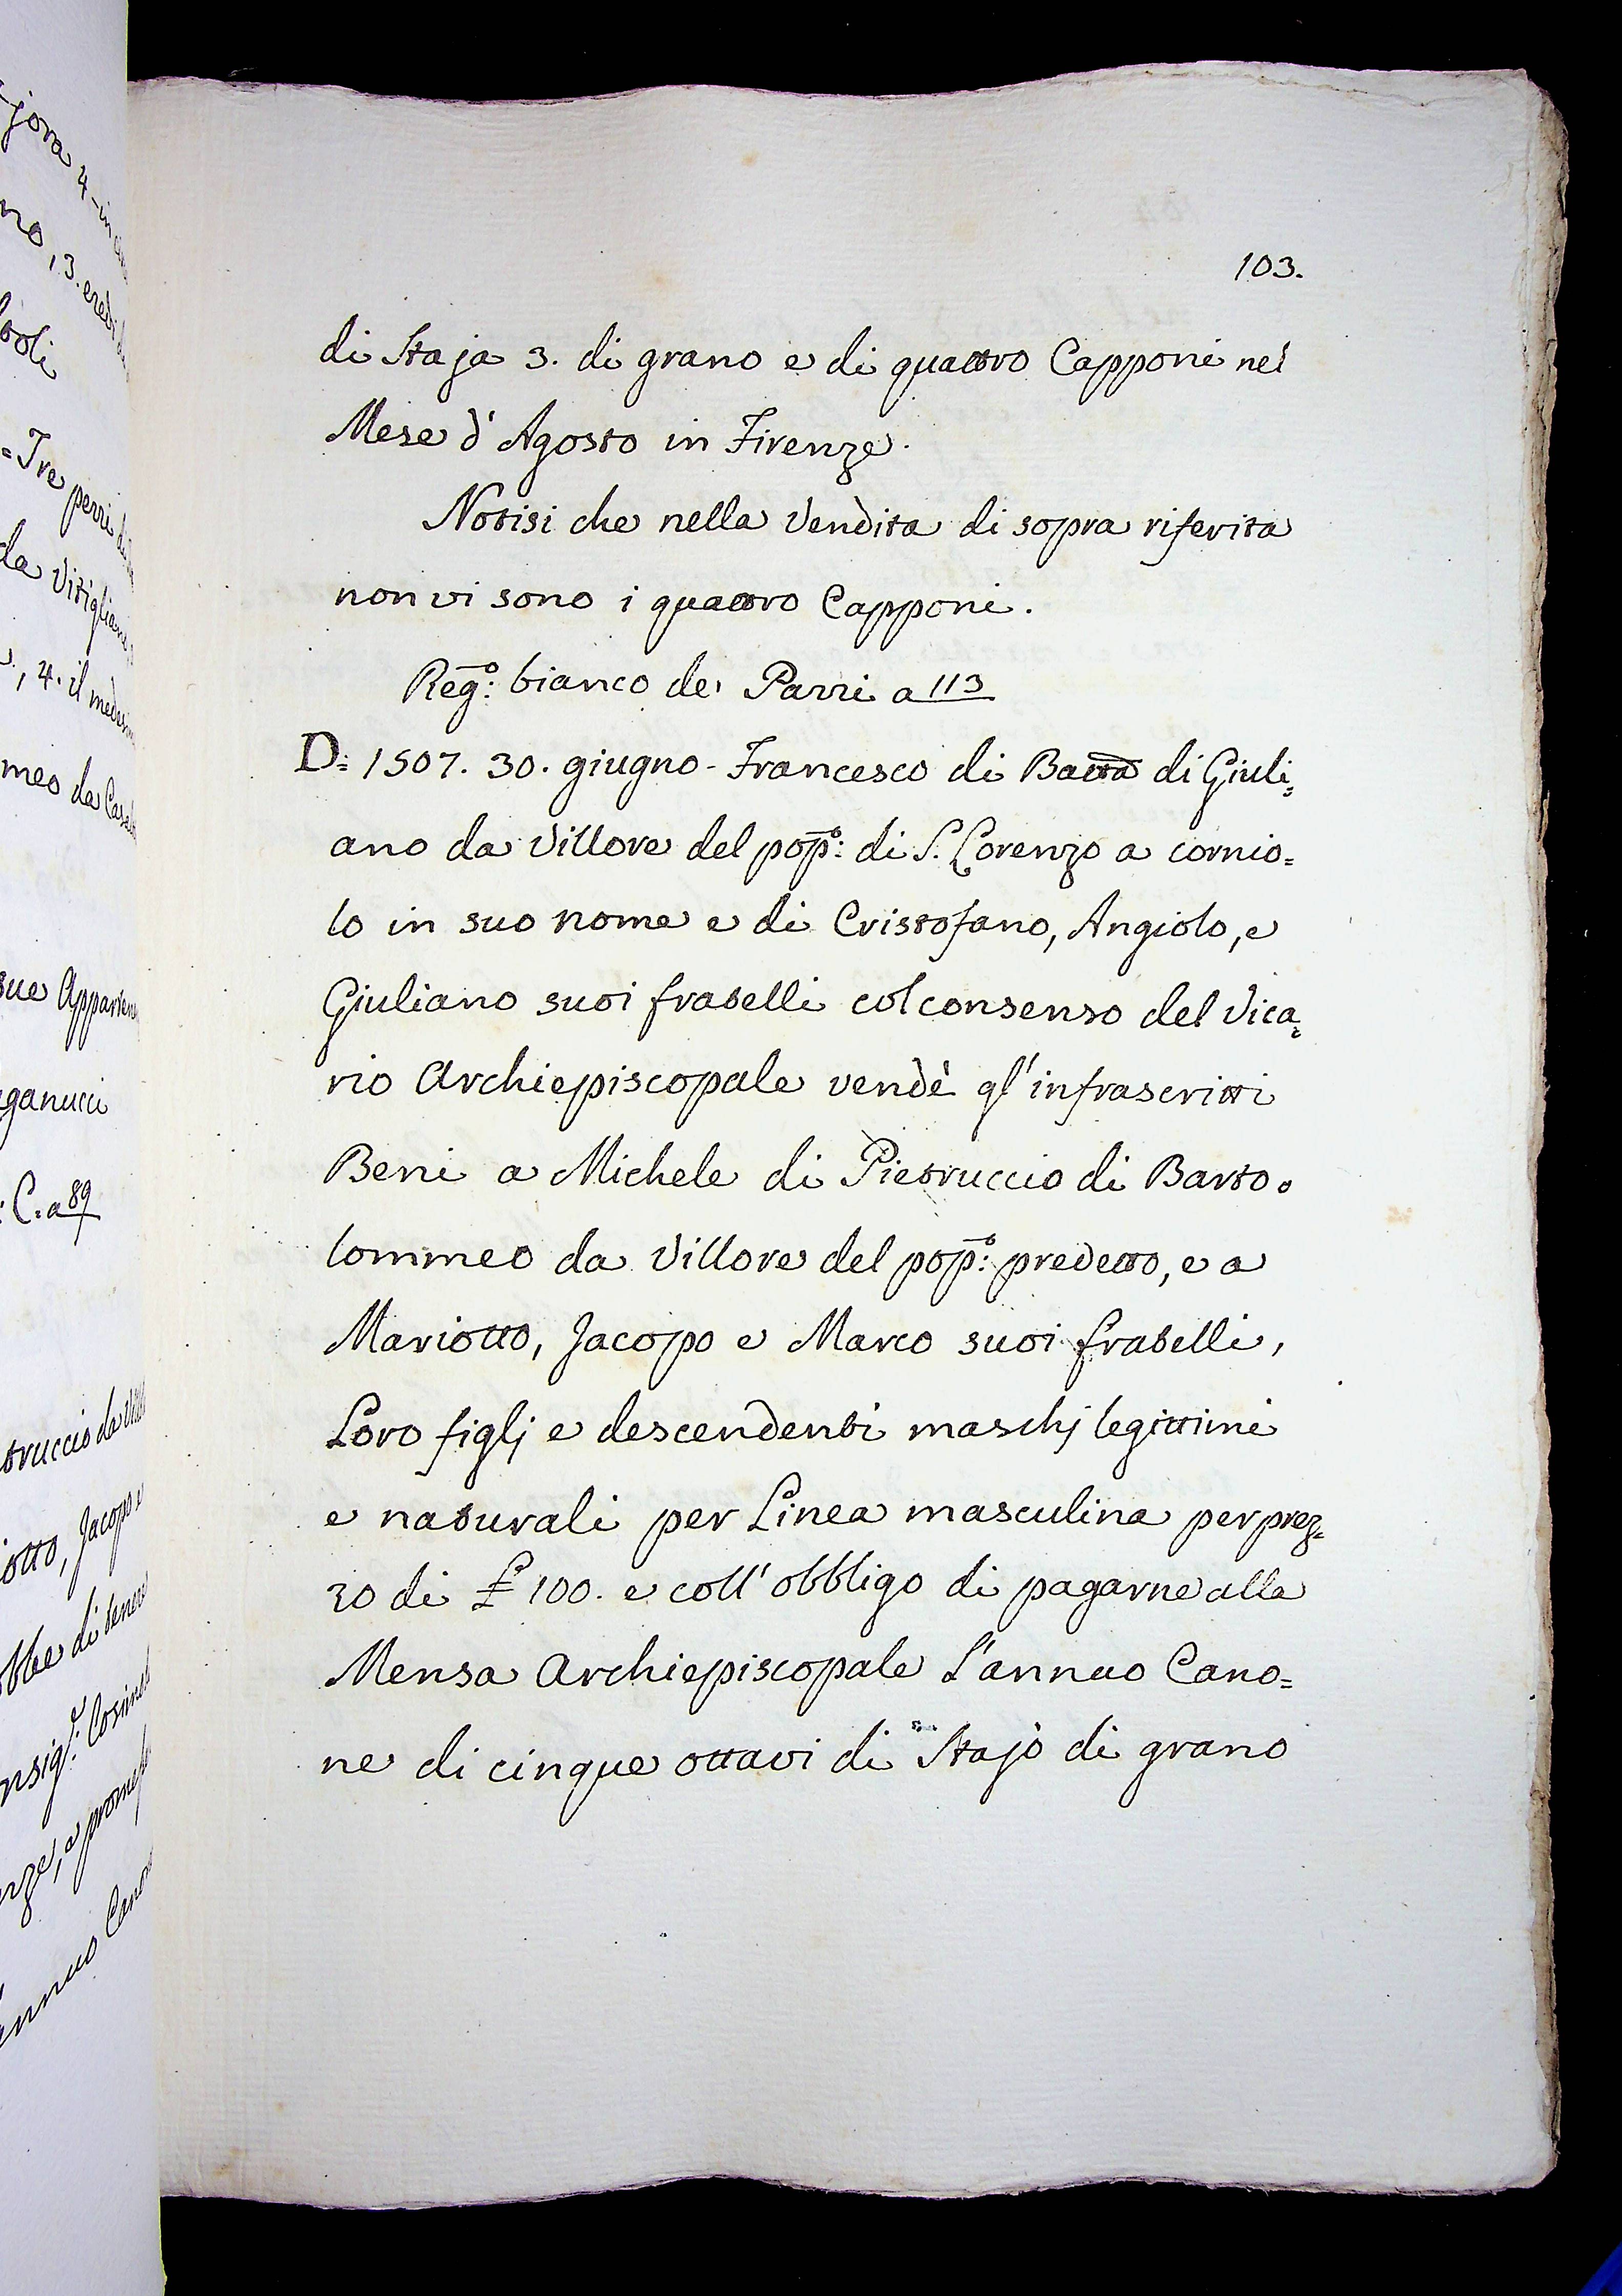 103.
di Staja 3. di grano e di quattro Capponi nel
Mese d'Agosto in Firenze.
Notisi che nella Vendita di sopra riferita
non vi sono i quattro Capponi.
Reg:º bianco de' Pazzi a 113
D: 1507. 30. giugno - Francesco di Batta di Giuli=
ano da Villore del pop:º di S. Lorenzo a cornio=
lo in suo nome e di Cristofano, Angiolo, e
Giuliano suoi fratelli col consenso del Vica=
rio Archiepiscopale vendè gl'infrascritti
Beni a Michele di Pietruccio di Barto=
lommeo da Villore del pop:º predetto, e a
Mariotto, Jacopo e Marco suoi fratelli,
Loro figlj e descendenti maschj legittimi
e naturali per Linea masculina per prez=
zo di £ 100. e coll'obbligo di pagarne alla
Mensa Archiepiscopale L'annuo Cano=
ne di cinque ottavi di Stajo di grano